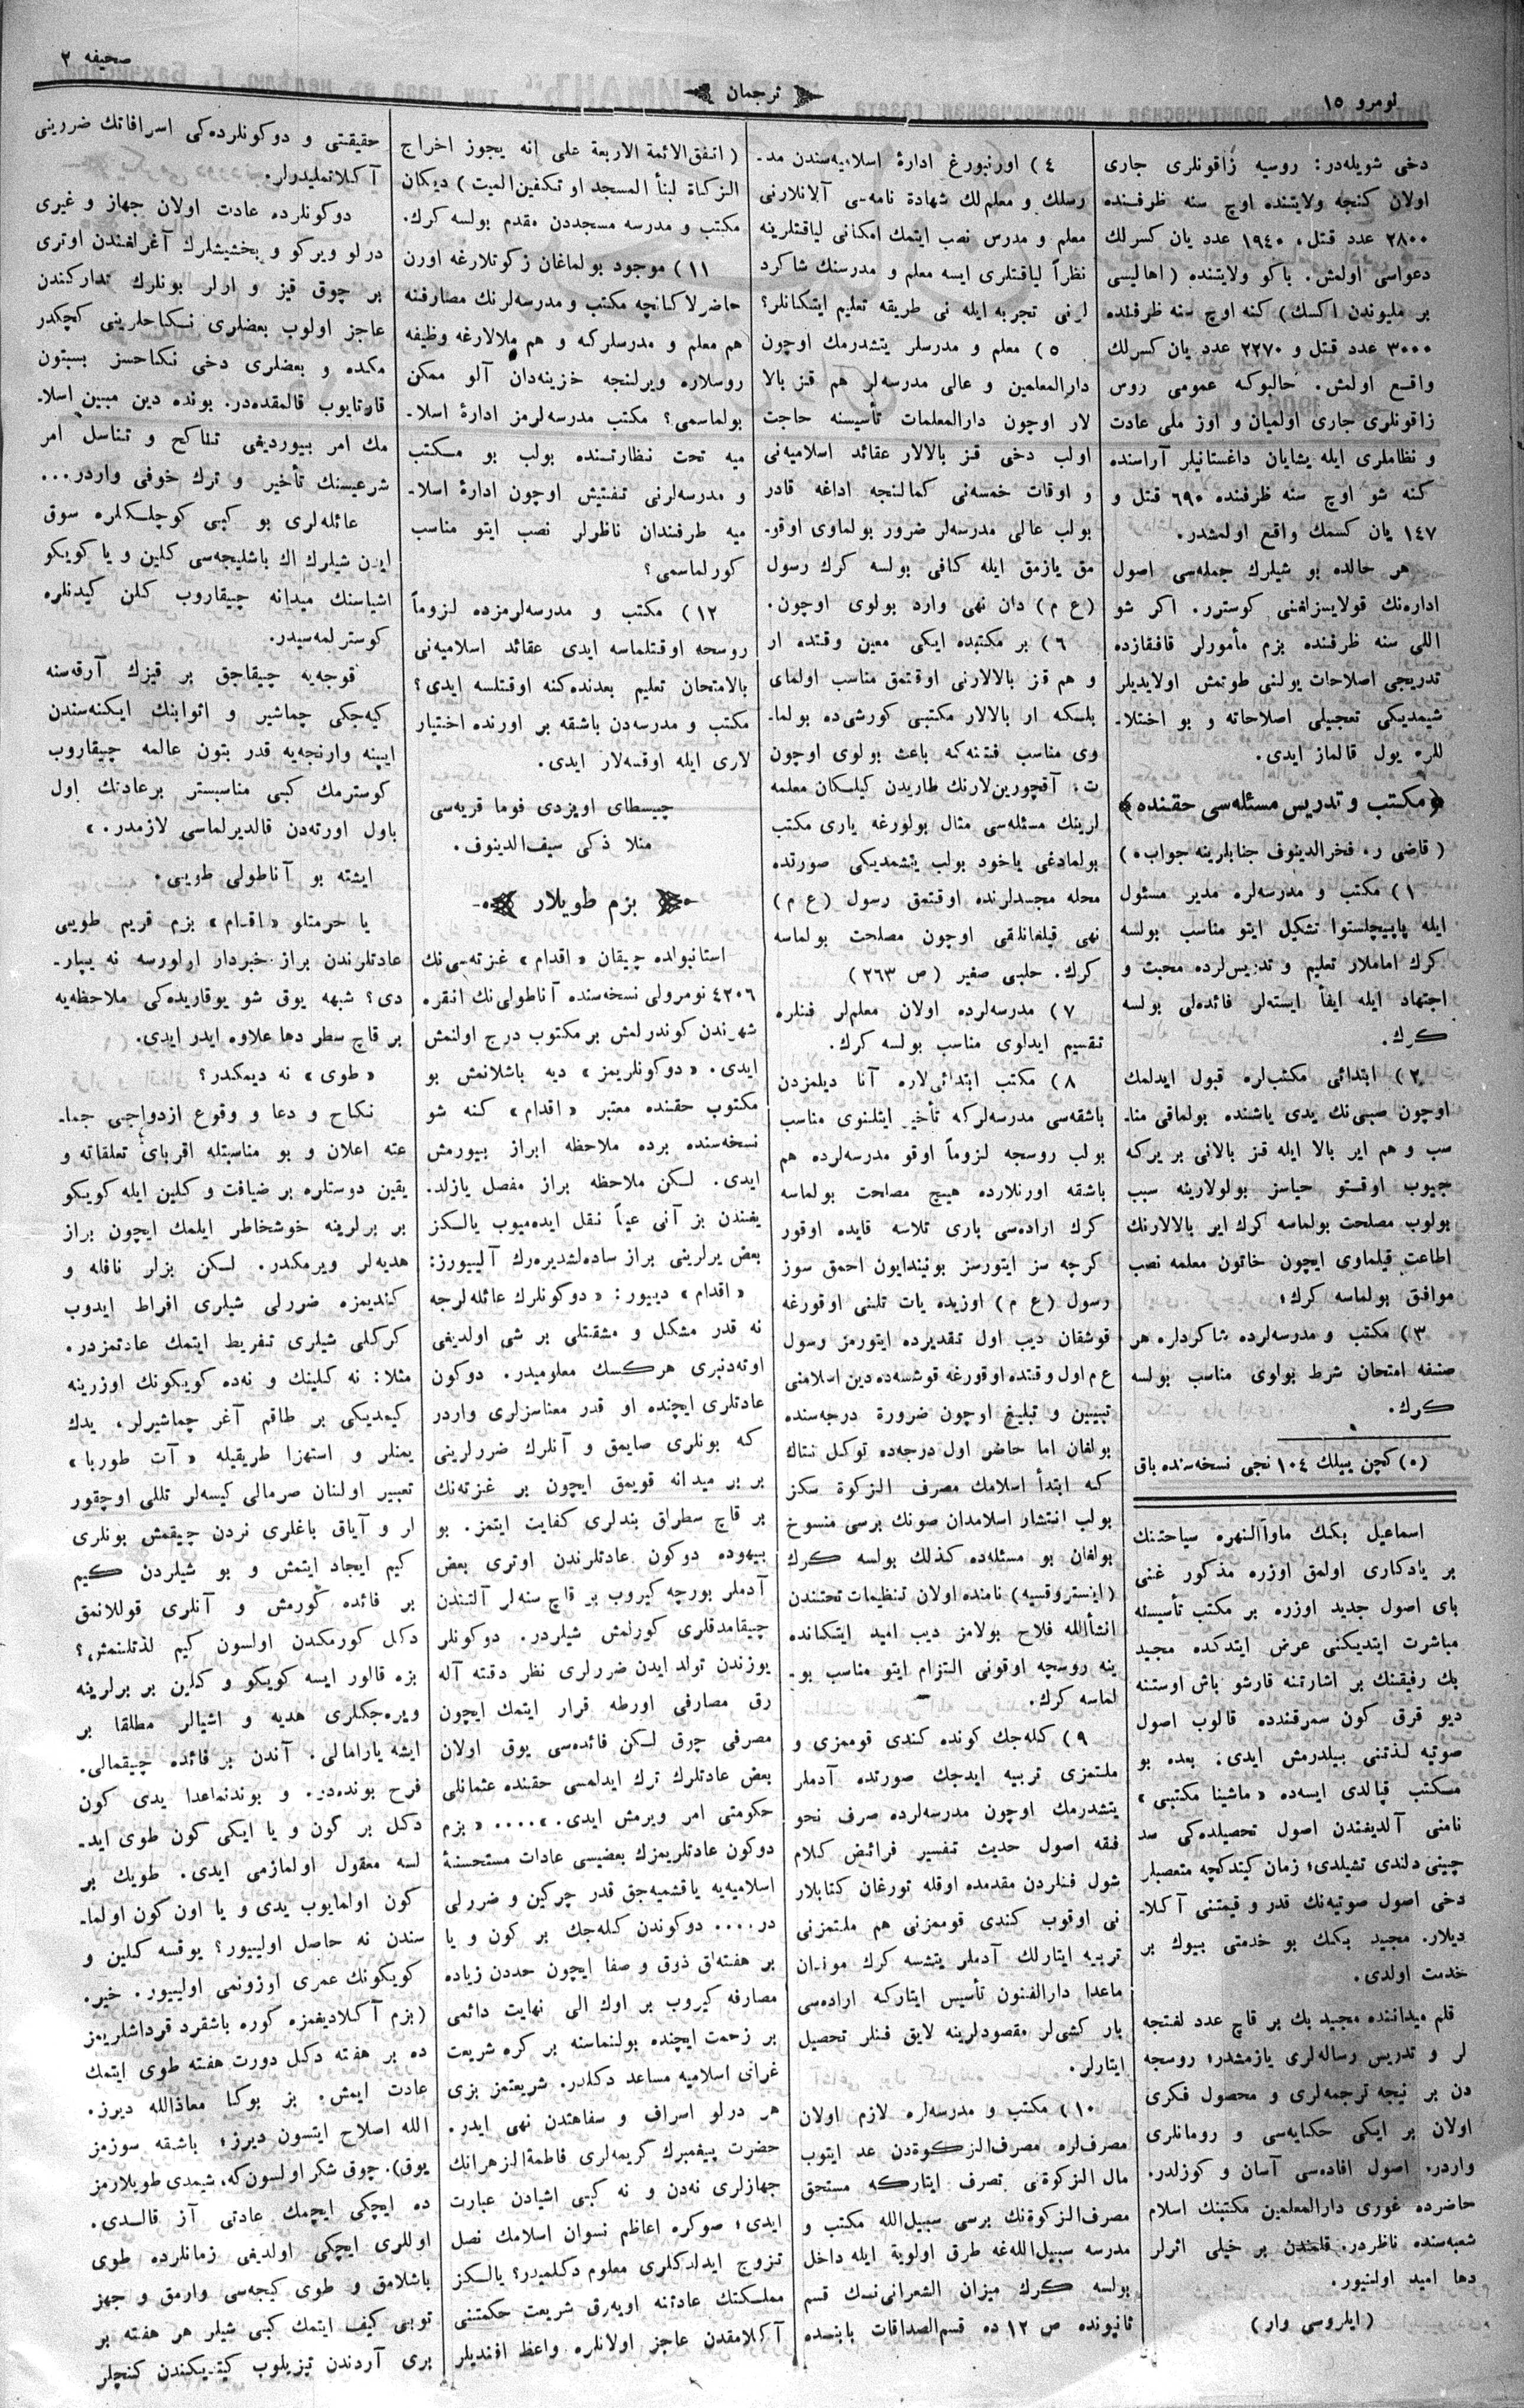 نومرو ١٥
ترجمان
صحيفه ٢
دخى شويله‌در: روسيه زاقونلرى جارى
اولان كنجه ولايتنده اوچ سنه ظرفنده
٢٨٠٠ عدد قتل، ١٩٤٠ عدد يان كسرلك
دعواسى اولمش. باكو ولايتنده (اهاليسى
بر مليوندن اكسك) كنه اوچ سنه ظرفنده
٣٠٠٠ عدد قتل و ٢٢٧٠ عدد يان كسرلك
واقع اولمش. حالبوكه عمومى روس
زاقونلرى جارى اولميان و اوز ملى عادت
و نظاملرى ايله يشايان داغستانيلر آراسنده
كنه شو اوچ سنه ظرفنده ٦٩٠ قتل و
١٤٧ يان كسمك واقع اولمشدر.
هر حالده بو شيلرك جمله‌سى اصول
اداره‌نك قولايسزلغنى كوسترر. اكر شو
اللى سنه ظرفنده بزم مأمورلر قافقازده
تدريجى اصلاحات يولنى طوتمش اولايديلر
شيمديكى تعجيلى اصلاحاته و بو اختلا-
للره يول قالماز ايدى.
﴿مكتب و تدريس مسئله‌سى حقنده﴾
(قاضى ر. فخرالدينوف جنابلرينه جواب•)
١) مكتب و مدرسه‌لره مدير مسئول
ايله پاپيچلستوا تشكيل ايتو مناسب بولسه
كرك اماملار تعليم و تدريس‌لرده محبت و
اجتهاد ايله ايفأ ايسته‌لر فائده‌لى بولسه
كرك.
٢) ابتدائى مكتب‌لره قبول ايدلمك
اوچون صبى‌نك يدى ياشنده بولماقى منا-
سب و هم اير بالا ايله قز بالانى بر يركه
جيوب اوقتو حياسز بولولارينه سبب
بولوب مصلحت بولماسه كرك اير بالالارنك
اطاعت قيلماوى ايچون خاتون معلمه نصب
موافق بولماسه كرك؛
٣) مكتب و مدرسه‌لرده شاكردلره هر
صنفه امتحان شرط بولوى مناسب بولسه
كرك.
(•) كچن ييلك ١٠٤ نجى نسخه‌سنده باق
اسماعيل بكك ماوراالنهره سياحتنك
بر يادكارى اولمق اوزره مذكور غنى
باى اصول جديد اوزره بر مكتب تأسيسله
مباشرت ايتديكنى عرض ايتدكده مجيد
بك رفيقنك بر اشارتنه قارشو باش اوستنه
ديو قرق كون سمرقندده قالوب اصول
صوتيه لذتنى بيلدرمش ايدى. بعده بو
مكتب قپالدى ايسه‌ده «ماشينا مكتبى»
نامنى آلديغندن اصول تحصيلده‌كى سد
چينى دلندى تشيلدى؛ زمان كيتدكچه متعصبلر
دخى اصول صوتيه‌نك قدر و قيمتنى آكلا-
ديلار. مجيد بكك بو خدمتى بيوك بر
خدمت اولدى.
قلم ميداننده مجيد بك بر قاچ عدد لغتجه
لر و تدريس رساله‌لرى يازمشدر؛ روسجه
دن بر نيجه ترجمه‌لرى و محصول فكرى
اولان بر ايكى حكايه‌سى و رومانلرى
واردر. اصول افاده‌سى آسان و كوزلدر.
حاضرده غورى دارالمعلمين مكتبنك اسلام
شعبه‌سنده ناظردر. قلمندن بر خيلى اثرلر
دها اميد اولنيور.
(ايلروسى وار)
٤) اورنبورغ ادارهٔ اسلاميه‌سندن مد-
رسلك و معلم‌لك شهادة نامه‌سى آلانلارنى
معلم و مدرس نصب ايتمك امكانى لياقتلرينه
نظراً لياقتلرى ايسه معلم و مدرسنك شاكرد
لرنى تجربه ايله نى طريقه تعليم ايتكانلر؟
٥) معلم و مدرسلر يتشدرمك اوچون
دارالمعلمين و عالى مدرسه‌لر هم قز بالا
لار اوچون دارالمعلمات تأسيسنه حاجت
اولب دخى قز بالالار عقائد اسلاميه‌نى
و اوقات خمسه‌نى كمالنجه اداغه قادر
بولب عالى مدرسه‌لر ضرور بولماوى اوقو-
مق يازمق ايله كافى بولسه كرك رسول
(ع م) دان نهى وارد بولوى اوچون.
٦) بر مكتبده ايكى معين وقتده ار
و هم قز بالالارنى اوقتمق مناسب اولماى
بلسكه ار بالالار مكتبى كورشى‌ده بولما-
وى مناسب فتنه‌كه باعث بولوى اوچون
ت: آقچورين‌لارنك طاريدن كيلكان معلمه
لرينك مسئله‌سى مثال بولورغه يارى مكتب
بولمادغى ياخود بولب يتشمديكى صورتده
محله مجسدلرنده اوقتمق رسول (ع م)
نهى قيلغانلقى اوچون مصلحت بولماسه
كرك. حلبى صغير (ص ٢٦٣)
٧) مدرسه‌لرده اولان معلم‌لر فنلره
تقسيم ايداوى مناسب بولسه كرك.
٨) مكتب ابتدائى‌لاره آنا ديلمزدن
باشقه‌سى مدرسه‌لركه تأخير ايتلنوى مناسب
بولب روسجه لزوماً اوقو مدرسه‌لرده هم
باشقه اورنلارده هيچ مصلحت بولماسه
كرك اراده‌سى بارى تلاسه قايده اوقور
كرچه سز ايتورسز بونيندايون احمق سوز
رسول (ع م) اوزيده يات تلنى اوقورغه
قوشقان ديب اول تقديرده ايتورمز رسول
ع م اول وقتده اوقورغه قوشسه‌ده دين اسلامنى
تبيين و تبليغ اوچون ضرورة درجه‌سنده
بولغان اما حاضر اول درجه‌ده توكل نتاك
كه ابتدأ اسلامك مصرف الزكوة سكز
بولب انتشار اسلامدان صونك برسى منسوخ
بولغان بو مسئله‌ده كذلك بولسه كرك
(اينستروقسيه) نامنده اولان تنظيمات تحتندن
انشأالله فلاح بولامز ديب اميد ايتكانده
ينه روسچه اوقونى التزام ايتو مناسب بو-
لماسه كرك.
٩) كله‌جك كونده كندى قوممزى و
ملتمزى تربيه ايدجك صورتده آدملر
يتشدرمك اوچون مدرسه‌لرده صرف نحو
فقه اصول حديث تفسير فرائض كلام
شول فنلردن مقدمده اوقله تورغان كتابلار
نى اوقوب كندى قوممزنى هم ملتمزنى
تربيه ايتارلك آدملر يتشسه كرك موندان
ماعدا دارالفنون تأسيس ايتاركه اراده‌سى
بار كشى‌لر مقصودلرينه لايق فنلر تحصيل
ايتارلر.
١٠) مكتب و مدرسه‌لره لازم اولان
مصرف‌لره مصرف‌الزكوةدن عد ايتوب
مال الزكوةنى تصرف ايتاركه مستحق
مصرف‌الزكوةنك برسى سبيل‌الله مكتب و
مدرسه سبيل‌الله‌غه طرق اولوية ايله داخل
بولسه كرك ميزان الشعرانى‌نك قسم
ثانيونده ص ١٢ ده قسم‌الصداقات بابنده
(اتفق‌الائمة الاربعة على انه يجوز اخراج
الزكاة لبنأ المسجد او تكفين‌الميت) ديكان
مكتب و مدرسه مسجددن مقدم بولسه كرك.
١١) موجود بولماغان زكوتلارغه اورن
حاضرلاكانچه مكتب و مدرسه‌لرنك مصارفنه
هم معلم و مدرسلركه و هم ملالارغه وظيفه
روسلاره ويرلنجه خزينه‌دان آلو ممكن
بولماسمى؟ مكتب مدرسه‌لرمز ادارهٔ اسلا-
ميه تحت نظارتسنده بولب بو مسكتب
و مدرسه‌لرنى تفتيش اوچون ادارهٔ اسلا-
ميه طرفندان ناظرلر نصب ايتو مناسب
كورلماسمى؟
١٢) مكتب و مدرسه‌لرمزده لزوماً
روسجه اوقتلماسه ايدى عقائد اسلاميه‌نى
بالامتحان تعليم بعدنده‌كنه اوقتلسه ايدى؟
مكتب و مدرسه‌دن باشقه بر اورنده اختيار
لارى ايله اوقسه‌لار ايدى.
چيسطاى اويزدى فوما قريه‌سى
منلا ذكى سيف‌الدينوف.
بزم طويلار
استانبولده چيقان «اقدام» غزته‌سى‌نك
٤٢٠٦ نومرولى نسخه‌سنده آناطولى‌نك انقره
شهرندن كوندرلمش بر مكتوب درج اولنمش
ايدى. «دوكونلريمز» ديه باشلانمش بو
مكتوب حقنده معتبر «اقدام» كنه شو
نسخه‌سنده برده ملاحظه ابراز بيورمش
ايدى. لكن ملاحظه براز مفصل يازلد-
يغندن بز آنى عيناً نقل ايده‌ميوب يالكز
بعض يرلرينى براز ساده‌لشديره‌رك آليیورز:
«اقدام» دييور: «دوكونلرك عائله‌لرجه
نه قدر مشكل و مشقتلى بر شى اولديغى
اوته‌دنبرى هركسك معلوميدر. دوكون
عادتلرى ايچنده او قدر معناسزلرى واردر
كه بونلرى صايمق و آنلرك ضررلرينى
بر بر ميدانه قويمق ايچون بر غزته‌نك
بر قاچ سطراق بندلرى كفايت ايتمز. بو
بيهوده دوكون عادتلرندن اوترى بعض
آدملر بورجه كيروب بر قاچ سنه‌لر آلتندن
چيقامدقلرى كورلمش شيلردر. دوكونلر
يوزندن تولد ايدن ضررلرى نظر دقته آله
رق مصارفى اورطه قرار ايتمك ايچون
مصرفى چوق لكن فائده‌سى يوق اولان
بعض عادتلرك ترك ايدلمسى حقنده عثمانلى
حكومتى امر ويرمش ايدى.».... «بزم
دوكون عادتلريمزك بعضيسى عادات مستحسنهٔ
اسلاميه‌يه ياقشميه‌جق قدر چركين و ضررلى
در.... دوكوندن كله‌جك بر كون و يا
بر هفته‌لق ذوق و صفا ايچون حددن زياده
مصارفه كيروب بر اوك الى نهايت دائمى
بر زحمت ايچنده بولنماسنه بر كره شريعت
غراى اسلاميه مساعد دكلدر. شريعتمز بزى
هر درلو اسراف و سفاهتدن نهى ايدر.
حضرت پيغمبرك كريمه‌لرى فاطمةالزهرانك
جهازلرى نه‌دن و نه كبى اشيادن عبارت
ايدى؛ صوكره اعاظم نسوان اسلامك نصل
تزوج ايدلدكلرى معلوم دكلميدر؟ يالكز
مملكتك عادتنه اويه‌رق شريعت حكمتنى
آكلامقدن عاجز اولانلره واعظ افنديلر
حقيقتى و دوكونلرده‌كى اسرافاتك ضررينى
آكلاتمليدرلر.
دوكونلرده عادت اولان جهاز و غيرى
درلو ويركو و بخشيشلرك آغرلغندن اوترى
بر چوق قيز و ارلر بونلرك تداركندن
عاجز اولوب بعضلرى نكاحلرينى كچكدر
مكده و بعضلرى دخى نكاحسز بسبتون
قارتايوب قالمقده‌در. بونده دين مبين اسلا-
مك امر بيورديغى تناكح و تناسل امر
شرعيسنك تأخير و ترك خوفى واردر...
عائله‌لرى بو كبى كوچلكلره سوق
ايدن شيلرك اك باشليجه‌سى كلين و يا كويكو
اشياسنك ميدانه چيقاروب كلن كيدنلره
كوسترلمه‌سيدر.
قوجه‌يه چيقاجق بر قيزك آرقه‌سنه
كيه‌جكى چماشير و اثوابنك ايكنه‌سندن
ايپينه وارنجه‌يه قدر بتون عالمه چيقاروب
كوسترمك كبى مناسبستر برعادتك اول
باول اورته‌دن قالديرلماسى لازمدر.»
ايشته بو آناطولى طويى.
يا حرمتلو «اقدام» بزم قريم طويى
عادتلرندن براز خبردار اولورسه نه يپار-
دى؟ شبهه يوق شو يوقاريده‌كى ملاحظه‌يه
بر قاچ سطر دها علاوه ايدر ايدى.
«طوى» نه ديمكدر؟
نكاح و دعا و وقوع ازدواجى جما-
عته اعلان و بو مناسبتله اقرباى تعلقاته و
يقين دوستلره بر ضيافت و كلين ايله كويكو
بر برلرينه خوشخاطر ايلمك ايچون براز
هديه‌لر ويرمكدر. لكن بزلر نافله و
كنديمزه ضررلى شيلرى افراط ايدوب
كركلى شيلرى تفريط ايتمك عادتمزدر.
مثلا: نه كلينك و نه‌ده كويكونك اوزرينه
كيمديكى بر طاقم آغر چماشيرلر، يدك
يمنلر و استهزا طريقيله «آت طوربا»
تعبير اولنان صرمالى كيسه‌لر تللى اوچقور
لر و آياق باغلرى نردن چيقمش بونلرى
كيم ايجاد ايتمش و بو شيلردن كيم
بر فائده كورمش و آنلرى قوللانمق
دكل كورمكدن اولسون كيم لذتلنمش؟
بزه قالور ايسه كويكو و كلين بر برلرينه
ويره‌جكلرى هديه و اشيالر مطلقا بر
ايشه يارامالى. آندن بر فائده چيقمالى.
فرح بونده‌در. و بوندنماعدا يدى كون
دكل بر كون و يا ايكى كون طوى ايد-
لسه معقول اولمازمى ايدى. طويك بر
كون اولمايوب يدى و يا اون كون اولما-
سندن نه حاصل اولييور؟ يوقسه كلين و
كويكونك عمرى اوزونمى اولييور. خير.
(بزم آكلاديغمزه كوره باشقرد قرداشلريمز
ده بر هفته دكل دورت هفته طوى ايتمك
عادت ايمش. بز بوكا معاذالله ديرز.
الله اصلاح ايتسون ديرز؛ باشقه سوزمز
يوق). چوق شكر اولسون كه، شيمدى طويلارمز
ده ايچكى ايچمك عادتى آز قالدى.
اوللرى ايچكى اولديغى زمانلرده طوى
باشلامق و طوى كيجه‌سى وارمق و جهز
توبى كيف ايتمك كبى شيلر هر هفته بر
برى آردندن تيزيلوب كيتديكندن كنچلر